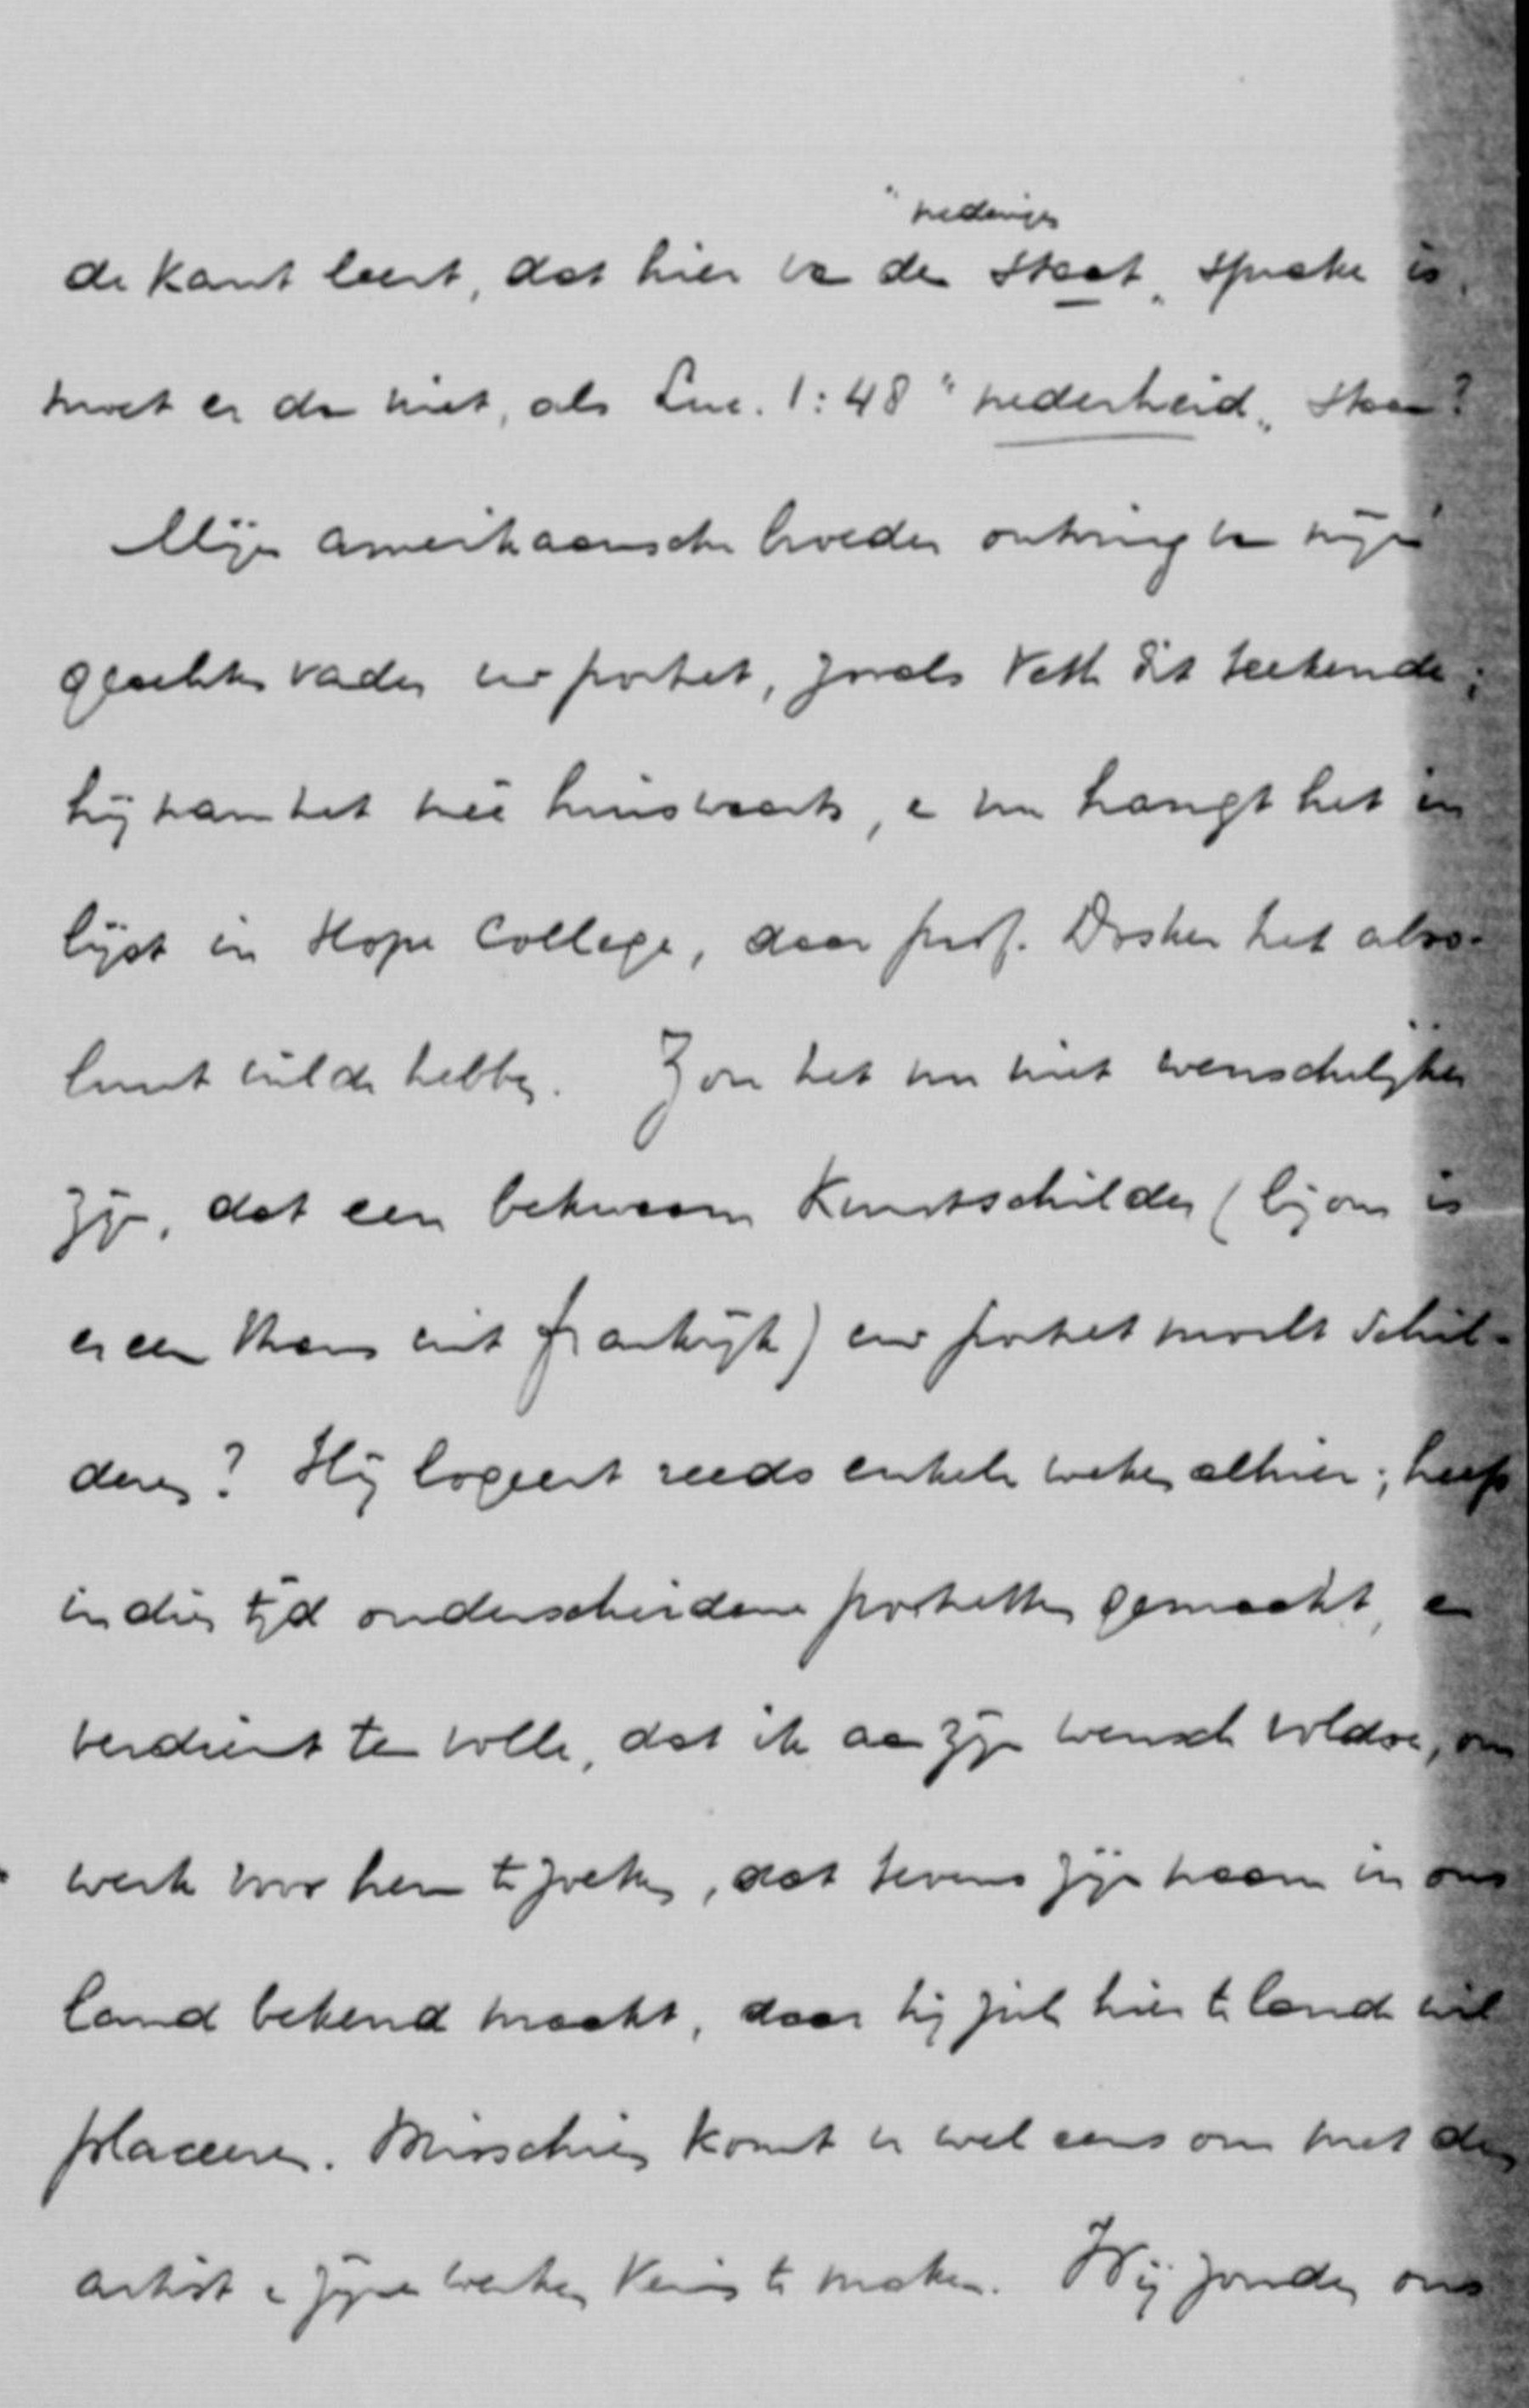 "nederigen
de kant leert, dat hier van den staat„ sprake is,
moet er dan niet, als Luc. 1:48 "nederheid„ staan?
Mijn Amerikaansche broeder ontving van mijn
geachten vader uw portret, zooals Veth dit teekende;
hij nam het meê huiswaarts, en nu hangt het in
lijst in Hope College, daar prof. Dosker het abso-
luut wilde hebben. Zou het nu niet wenschelijker
zijn, dat een bekwaam Kunstschilder (bij ons is
er een thans uit Frankrijk) uw portret mocht schil-
deren? Hij logeert reeds enkele weken alhier; heeft
in dien tijd onderscheidene portretten gemaakt, en
verdient ten volle, dat ik aan zijn wensch voldoe, om
werk voor hem te zoeken, dat tevens zijn naam in ons
land bekend maakt, daar hij zich hier te lande wil
placeeren. Misschien komt u wel eens om met den
artist en zijne werken kennis te maken. Wij zouden ons